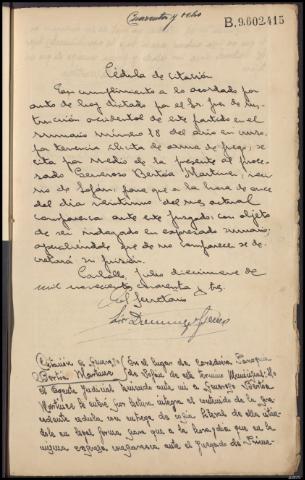 Cuarenta y ocho
B,9.602.415
Cédula de citación
En cumplimiento a lo acordado por
auto de hoy dictado por el Sr Juez de ins-
trucción accidental de este partido en el
sumario número 18 del año en curso
por tenencia ilícita de arma de fuego, se
cita por medio de la presente al proce-
sado Generoso Bértoa Martínez, veci-
no de Sofán, para que a la hora de once
del día veintiuno del mes actual
comparezca ante este Juzgado con objeto
de ser indagado en expresado sumario;
apercibiéndole que de no comparecer se de-
cretará su prisión.
Carballo, Julio diecinueve de
mil novecientos cuarenta y tres.
El Secretario
Citación a Generoso
Bértoa Martínez
En el lugar de Parroquia
de Sofán de este término Municipal: Yo
el Agente Judicial teniendo ante mí a Generoso Bértoa
Martínez le notifiqué por lectura íntegra el contenido de la pre-
cedente cédula con entrega de copia literal de ella citán-
dole en legal forma para que a la hora y día que en la
misma expresa comparezca ante el Juzgado de